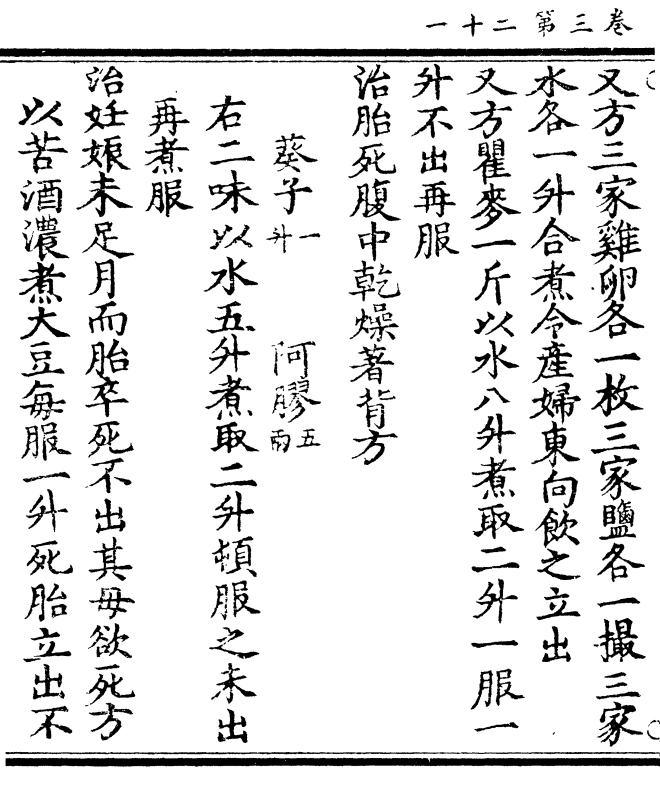 卷三第二十一
又方三家雞卵各一枚三家鹽各一撮三家
水各一升合煮令產婦東向飲之立出
又方瞿麥一斤以水八升煮取二升一服一
升不出再服
治胎死腹中乾燥著背方
葵子一升 阿膠五兩
右二味以水五升煮取二升頓服之未出
再煮服
治妊娠未足月而胎卒死不出其母欲死方
以苦酒濃煮大豆每服一升死胎立出不